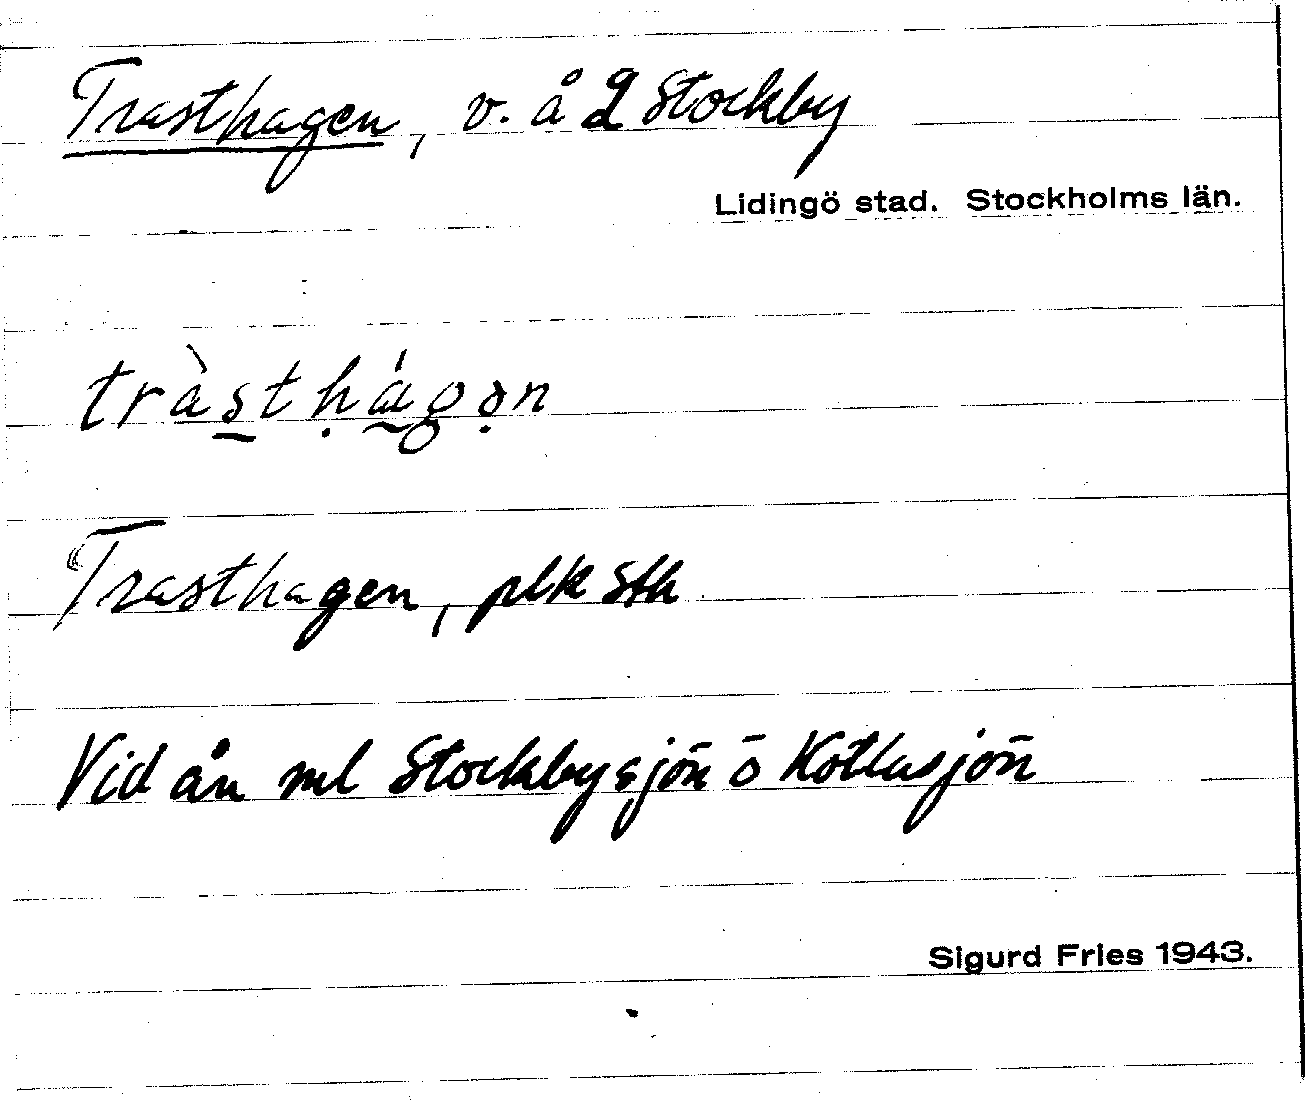 Trasthagen, v. å 2 Stockby
Lidingö stad. Stockholms län.
tràsthágən
Trasthagen, plk Sth
Vid ån ml Stockbysjön o Kottlasjön
Sigurd Fries 1943.